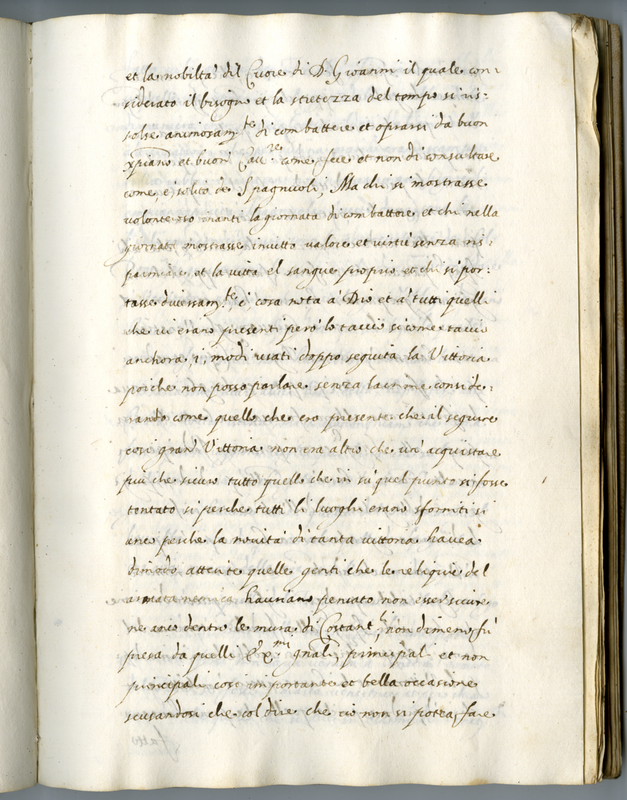 et la nobiltà dil Cuore di D. Giovanni il quale con=
siderato il bisogno et la stretezza del tempo si ris=
solse animosam.te di combattere et oprarsi da buon
xpiano et buon Cau.re come fece et non di consultare
come, è, solito de Spagnuoli; Ma chi si mostrasse
volonteroso inanti la giornata di combattere et chi nella
giornata mostrasse invitto valore et virtù senza ris=
parmiare et la vitta el sangue proprio et chi si por=
tasse diversam.te, è cosa nota à Dio et à tutti quelli
che vi erano presenti però lo taccio si come taccio
anchora, i, modi usati doppo seguita la Vittoria
poiche non posso parlare senza lacrime conside=
rando come quello che ero presente che il seguire
cosi gran Vittoria non era altro che un' acquistare
più che sicuro tutto quello che in su quel punto si fosse
tentato si perche tutti li luoghi erano sforniti si
anco perche la novità di tanta vittoria havea
dimodo atterite quelle genti che le reliquie del
armata nemica hauriano pensato non esser sicure
ne anco dentro le mura di Costant.li non dimeno fù
presa da quelli gnali principali et non
principali cosi importante et bella occasione
scusandosi che col dire che ciò non si potea fare
fatto